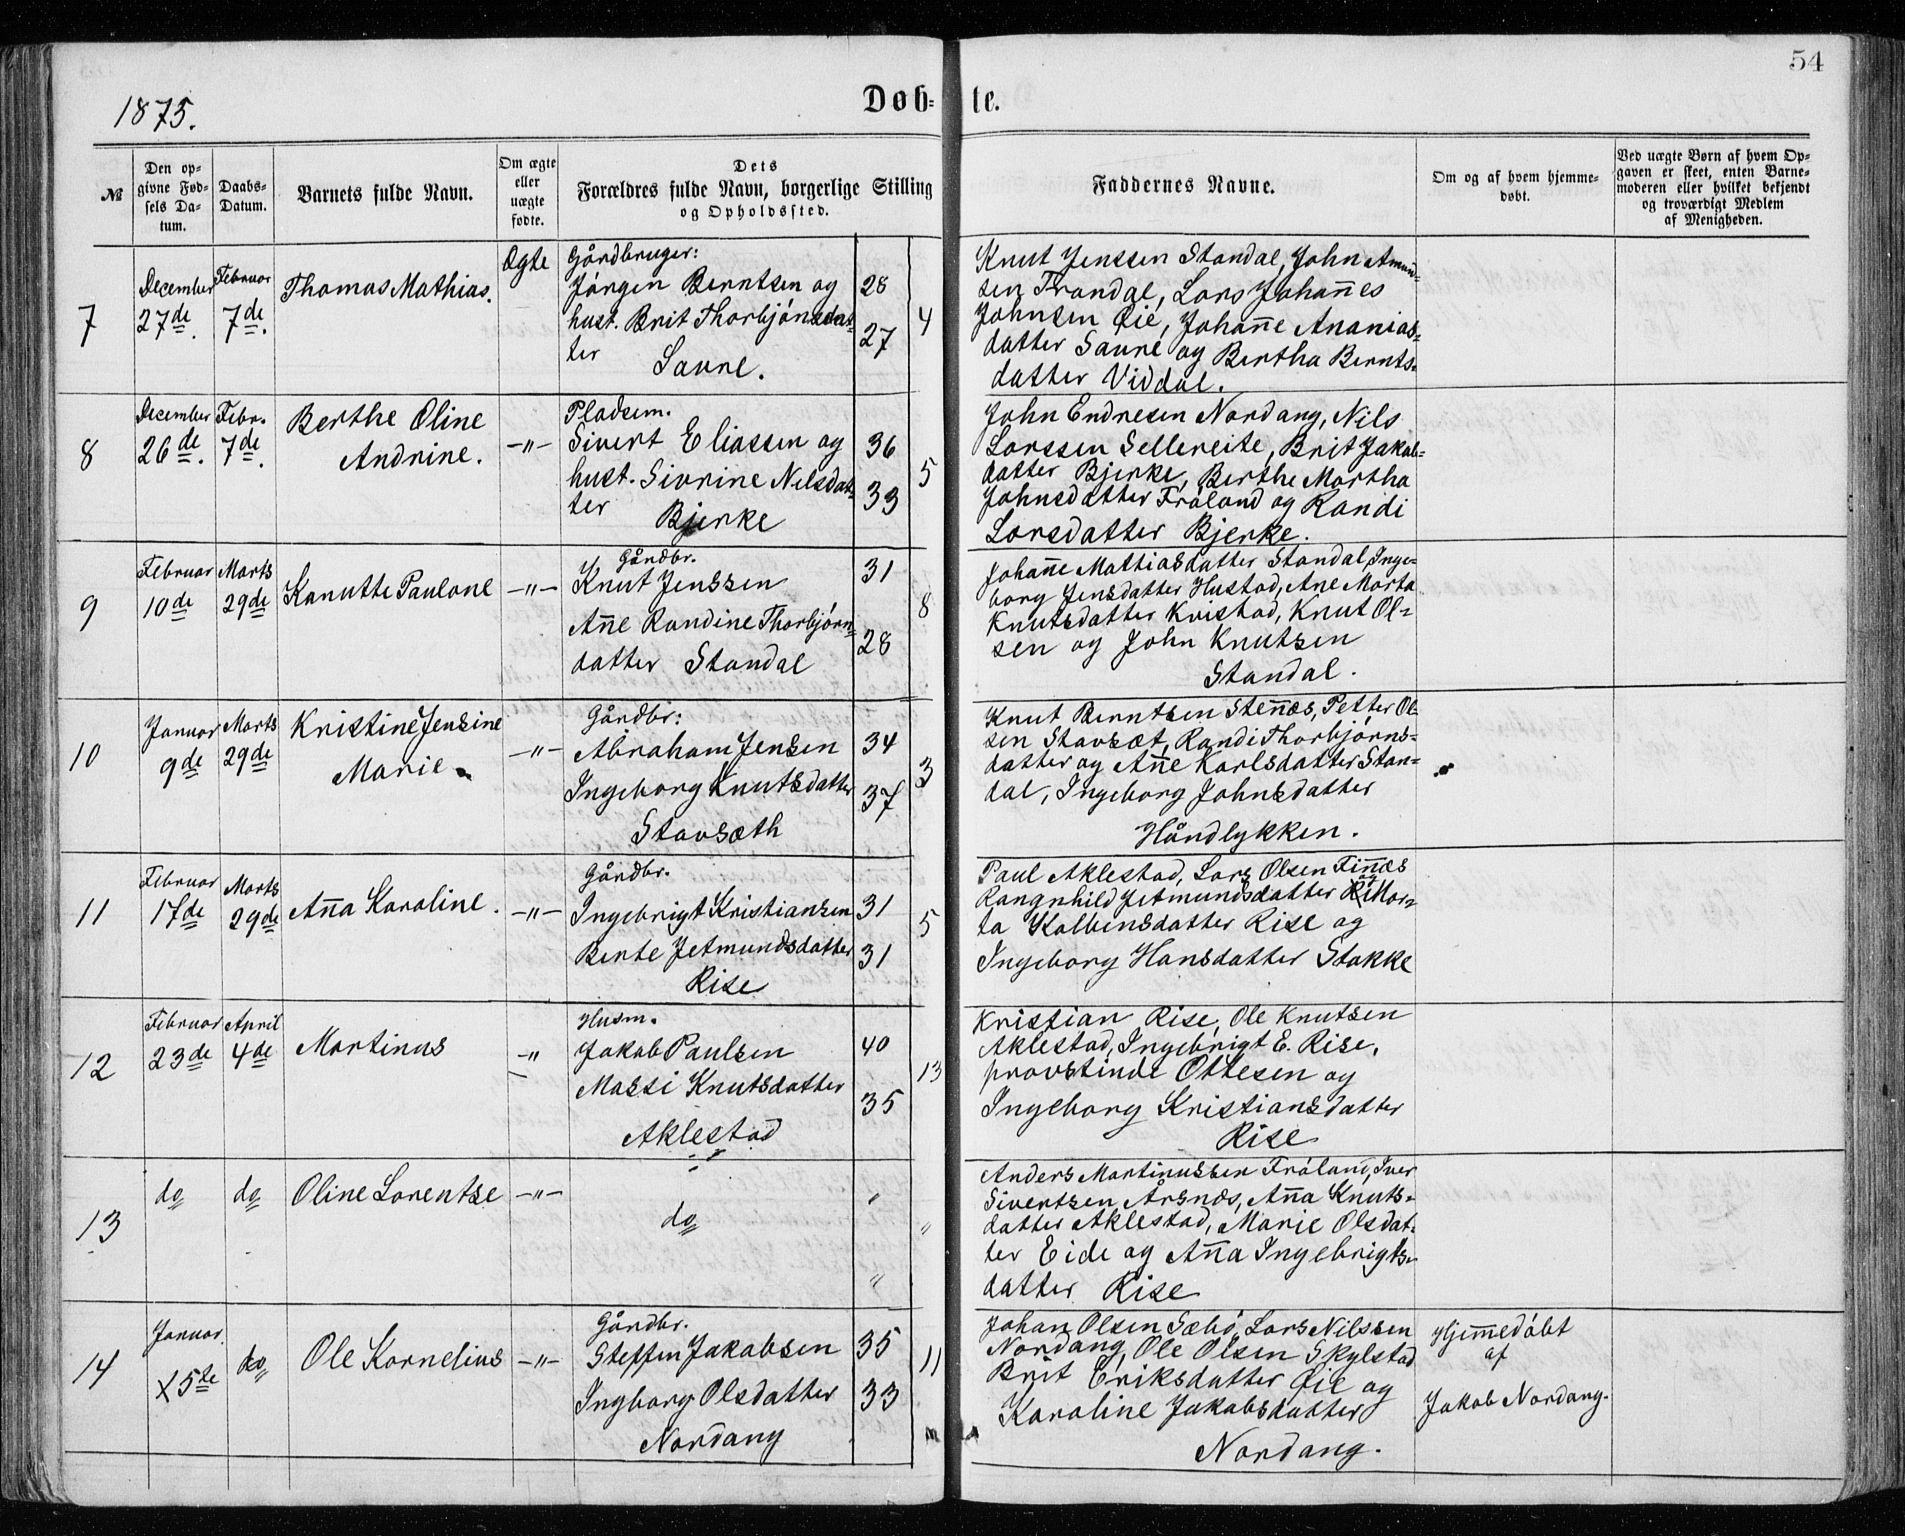 54
1875.
Døb-
te.
№
Den op-
givne Fød-
sels Da-
tum.
Daabs-
Datum.
Barnets fulde Navn.
Om ægte
eller
uægte
fødte.
Dets
Forældres fulde Navn, borgerlige Stilling
og Opholdssted.
Faddernes Navne.
Om og af hvem hjemme-
døbt.
Ved uægte Børn af hvem Op-
gaven er skeet, enten Barne-
moderen eller hvilket bekjendt
og troværdigt Medlem
af Menigheden.
7
December
27de.
Februar
7de.
Thomas Mathias.
Ægte
Gårdbruger:
Jørgen Berntsen og
hust. Brit Thorbjönsdat-
ter
Saure.
28
27
4
Knut Jenssen Standal, John Amun-
sen Trandal, Lars Johannes
Johnsen Øie, Johanne Ananias-
datter Saure og Bertha Bernts-
datter Viddal.
8
December
26de.
Febr.
7de.
Berthe Oline
Andrine.
-"-
Pladsem.
Sivert Eliassen og
hust. Sivrine Nilsdat-
ter
Bjerke
36
33
5
John Endresen Nordang, Nils
Larssen Sellereite, Brit Jakob-
datter Bjerke, Berthe Martha
Johnsdatter Fråland og Randi
Larsdatter Bjerke.
9
Februar
10de
Marts
29de
Kanutte Paulone
-"-
Gårdbr.
Knut Jenssen
Anne Randine Thorbjørn-
datter Standal
31
28
8
Johanne Mathiasdatter Standal, Inge-
borg Jensdatter Hustad, Ane Marta
Knutsdatter Kvistad, Knut Ol-
sen og John Knutsen
Standal.
10
Januar
9de
Marts
29de
Kristine Jensine
Marie.
-"-
Gårdbr:
Abraham Jensen
Ingeborg Knutsdatter
Stavsæth
34
37
3
Knut Berntsen Stennæs, Petter Ol-
sen Stavsæt, Randi Thorbjørns-
datter og Anne Karlsdatter Stan-
dal, Ingeborg Johnsdatter
Håndlykken.
11
Februar
17de
Marts
29de
Anna Karoline.
-"-
Gårdbr.
Ingebrigt Kristiansen
Bente Jetmundsdatter
Rise
31
31
5
Paul Aklestad, Lars Olsen Finnæs
Rangnhild Jetmundsdatter Mar-
ta Kolbensdatter Rise og
Ingeborg Hansdatter Stokke
12
Februar
23de
April
4de
Martinus
-"
Husm.
Jakob Paulsen
Massi Knutsdatter
Aklestad
40
35
13
Kristian Rise, Ole Knutsen
Aklestad, Ingebrigt E. Rise,
provstinde Ottesen og
Ingeborg Kristiansdatter
Rise
13
do
do
Oline Lorentse
-"-
do
"
"
"
Anders Martinussen Fråland, Iver
Sivertsen Årsnæs, Anna Knuts-
datter Aklestad, Marie Olsdat-
ter Eide og Anna Ingebrigts-
datter Rise
14
Januar
X5te
do
Ole Kornelius
-"-
Gårdbr.
Steffen Jakobsen
Ingborg Olsdatter
Nordang
35
33
11
Johan Olsen Sæbö, Lars Nilssen
Nordang, Ole Olsen Skylstad
Brit Eriksdatter Øie og
Karoline Jakobsdatter
Nordang.
Hjemmedöbt
af
Jakob Nordang.